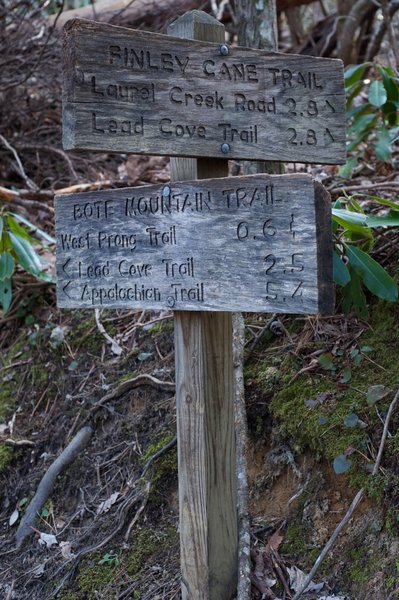 FINLEY CANE TRAIL
Laurel Creek Road 2.8
Lead Cove Trail 2.8
BOTE MOUNTAIN TRAIL
West Prong Trail 0.6
< Lead Cove Trail 2.5
< Appalachian Trail